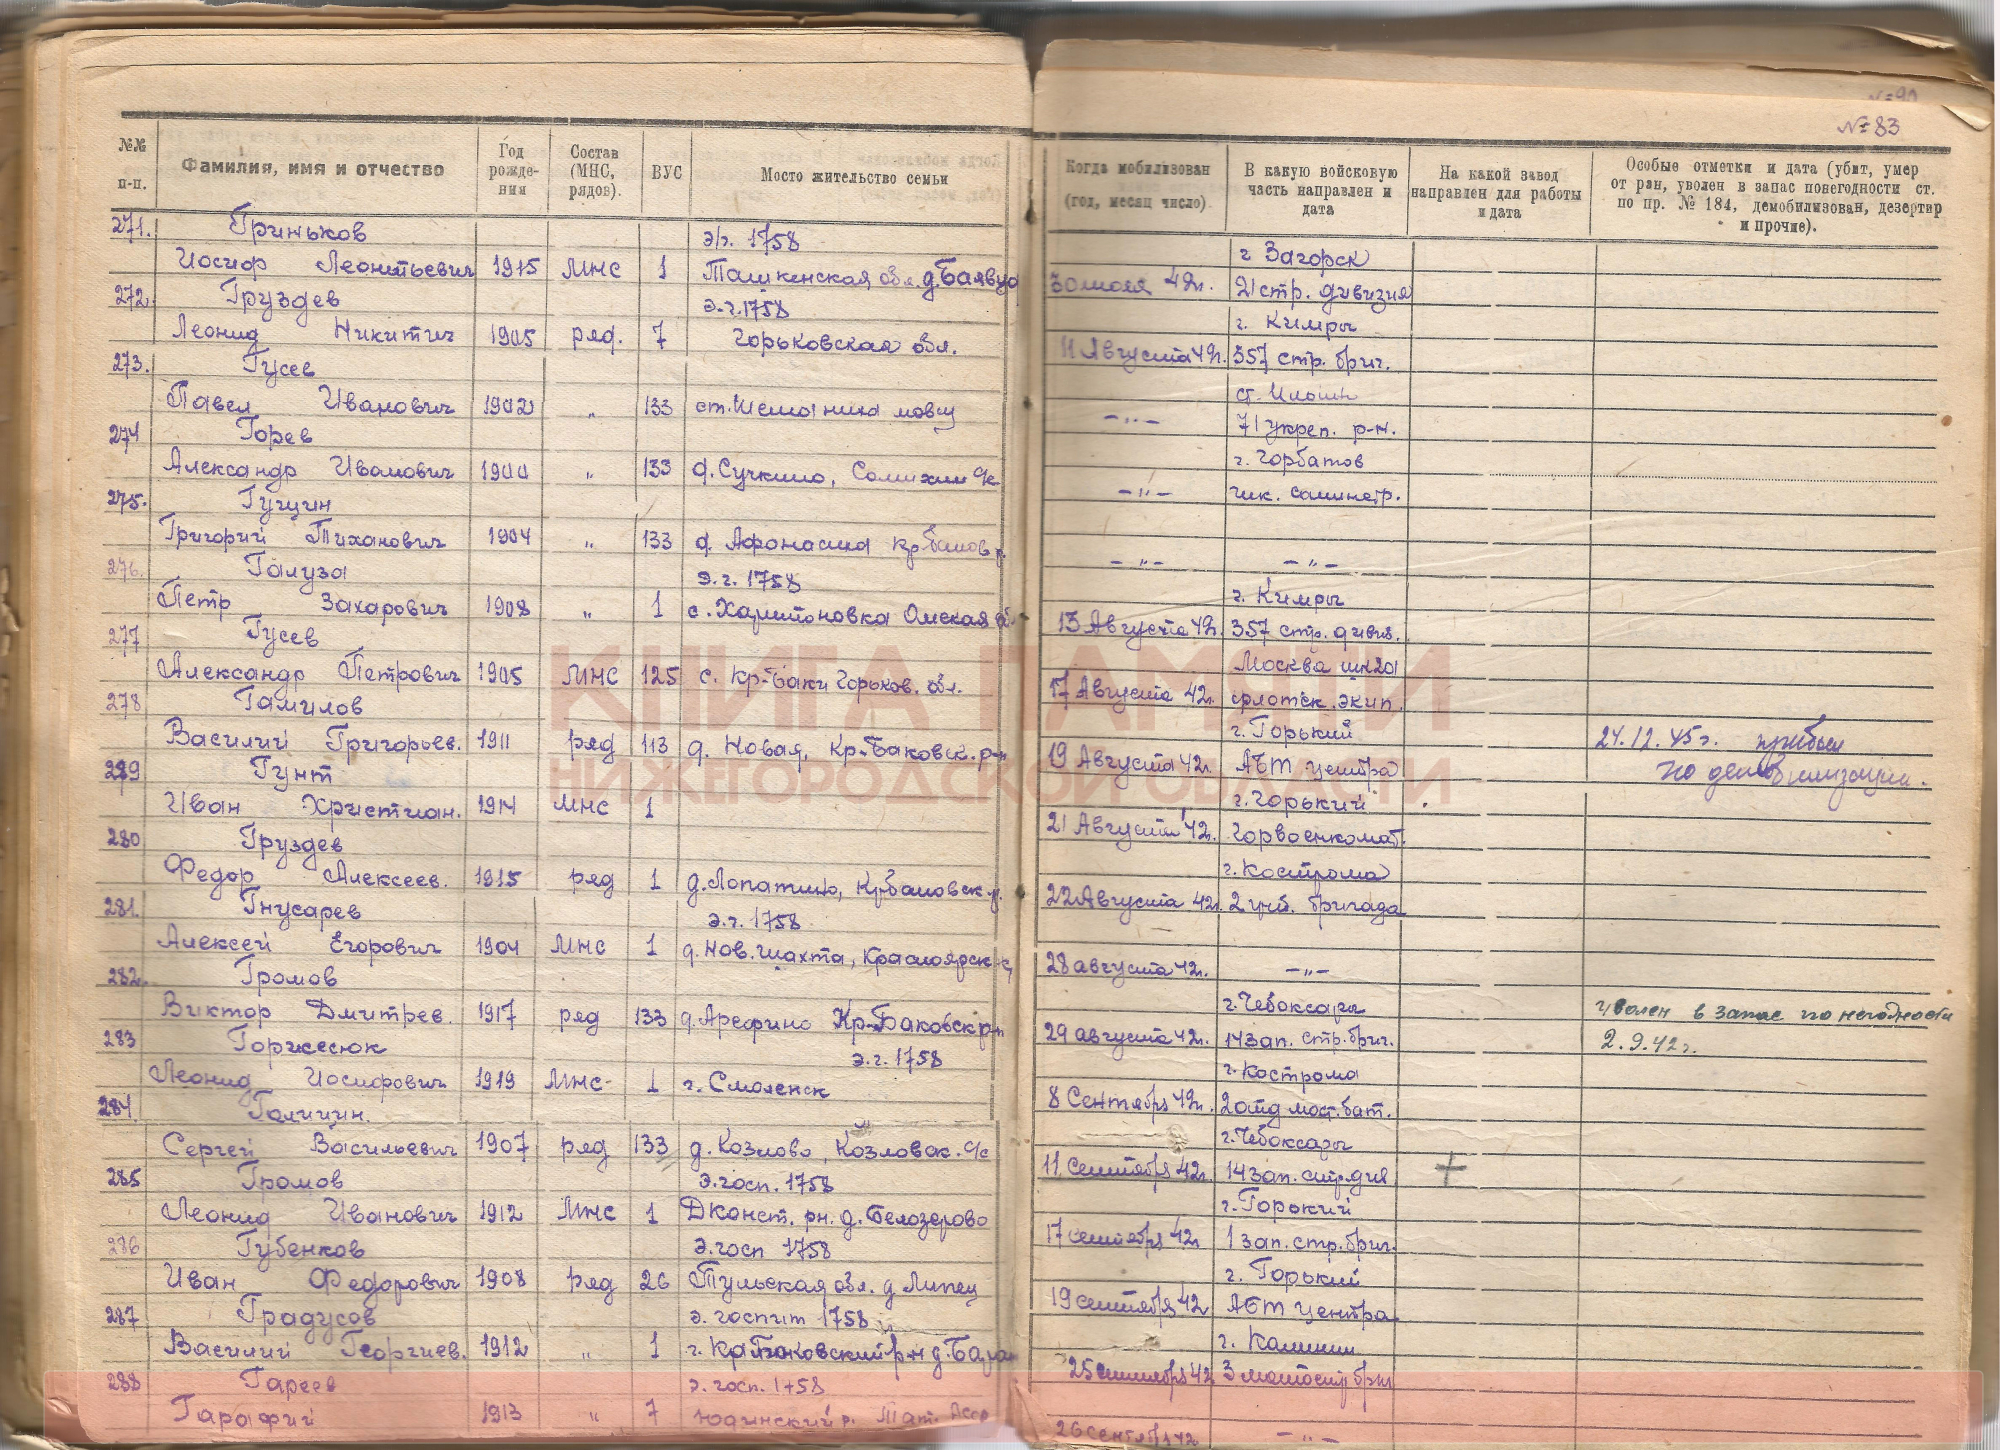 № 83
№№ п-п.
Фамилия, имя и отчество
Год рожде-ния
Состав (МНС, рядов).
ВУС
Мосто жительство семьи
Когда мобилизован (год, месяц число).
В какую войсковую часть направлен и дата
На какой завод направлен для работы и дата
Особые отметки и дата (убит, умер от ран, уволен в запас понегодности ст. по пр. № 184, демобилизован, дезертир и прочие).
271. Гриньков э/г. 1758 г Загорск
Иосиф Леонтьевич 1915 МНС 1 обл. 42г. 21 стр. дивизия
272. Груздев э.г. 1758 г. Кимры
Леонид Никитич 1905 ряд. 7 Горьковская обл. 11 Августа 42г. 357 стр. бриг.
273. Гусев ст.
Павел Иванович 1902 „ 133 ст. —„— 71 укреп. р-н.
274 Горев г. Горбатов
Александр Иванович 1900 „ 133 д. Сучкино, —„—
275. Гущин
Григорий Тиханович 1904 „ 133 д. —„— —„—
276. Галуза э.г. 1758 г. Кимры
Петр Захарович 1908 „ 1 с. Харитоновка Омская 13 Августа 42г. 357 стр. дивиз.
277 Гусев Москва
Александр Петрович 1905 МНС 125 с. Кр-Баки Горьков. обл. 17 Августа 42г. флотск. экип.
278 Гамилов г. Горький 24.12.45г. прибыл
Василий Григорьев. 1911 ряд 113 д. Новая, Кр-Баковск. р-н 19 Августа 42г. АБТ центра по демобилизации.
279 Гунт г. Горький
Иван Христиан. 1914 МНС 1 21 Августа 42г. Горвоенкомат.
280 Груздев г. Кострома
Федор Алексеев. 1915 ряд 1 д. Лопатино, 22 Августа 42г. 2 бригада
281. Гнусарев э.г. 1758
Алексей Егорович 1904 МНС 1 д. Нов. шахта, Красноярск 28 августа 42г. —„—
282. Громов г. Чебоксары уволен в запас по негодности
Виктор Дмитрев. 1917 ряд 133 д. Арефино Кр-Баковск р-н 29 августа 42г. 14 зап. стр. бриг. 2.9.42г.
283 Горжесюк э.г. 1758 г. Кострома
Леонид Иосифович 1919 МНС- 1 г. Смоленск 8 Сентября 42г. 2 отд мот. бат.
284. Галичин. г. Чебоксары
Сергей Васильевич 1907 ряд 133 д. Козлово, Козловск. с/с 11 сентября 42г. 14 зап. стр. див +
285 Громов Э.госп. 1758 г. Горький
Леонид Иванович 1912 МНС 1 Дконст. рн. д. Белозерово 17 сентября 42г 1 зап. стр. бриг.
286 Губенков Э.госп 1758 г. Горький
Иван Федорович 1908 ряд 26 Тульская обл. д Липец 19 сентября 42 АБТ центра
287 Градусов э. госпит 1758 г. Калинин
Василий Георгиев. 1912 „ 1 25 сентября 42 3
288 Гареев э. госп. 1758
Гарафий 1913 „ 7 Юдинский р. Тат. Асср 26 сентября 42 —„—
КНИГА ПАМЯТИ
НИЖЕГОРОДСКОЙ ОБЛАСТИ